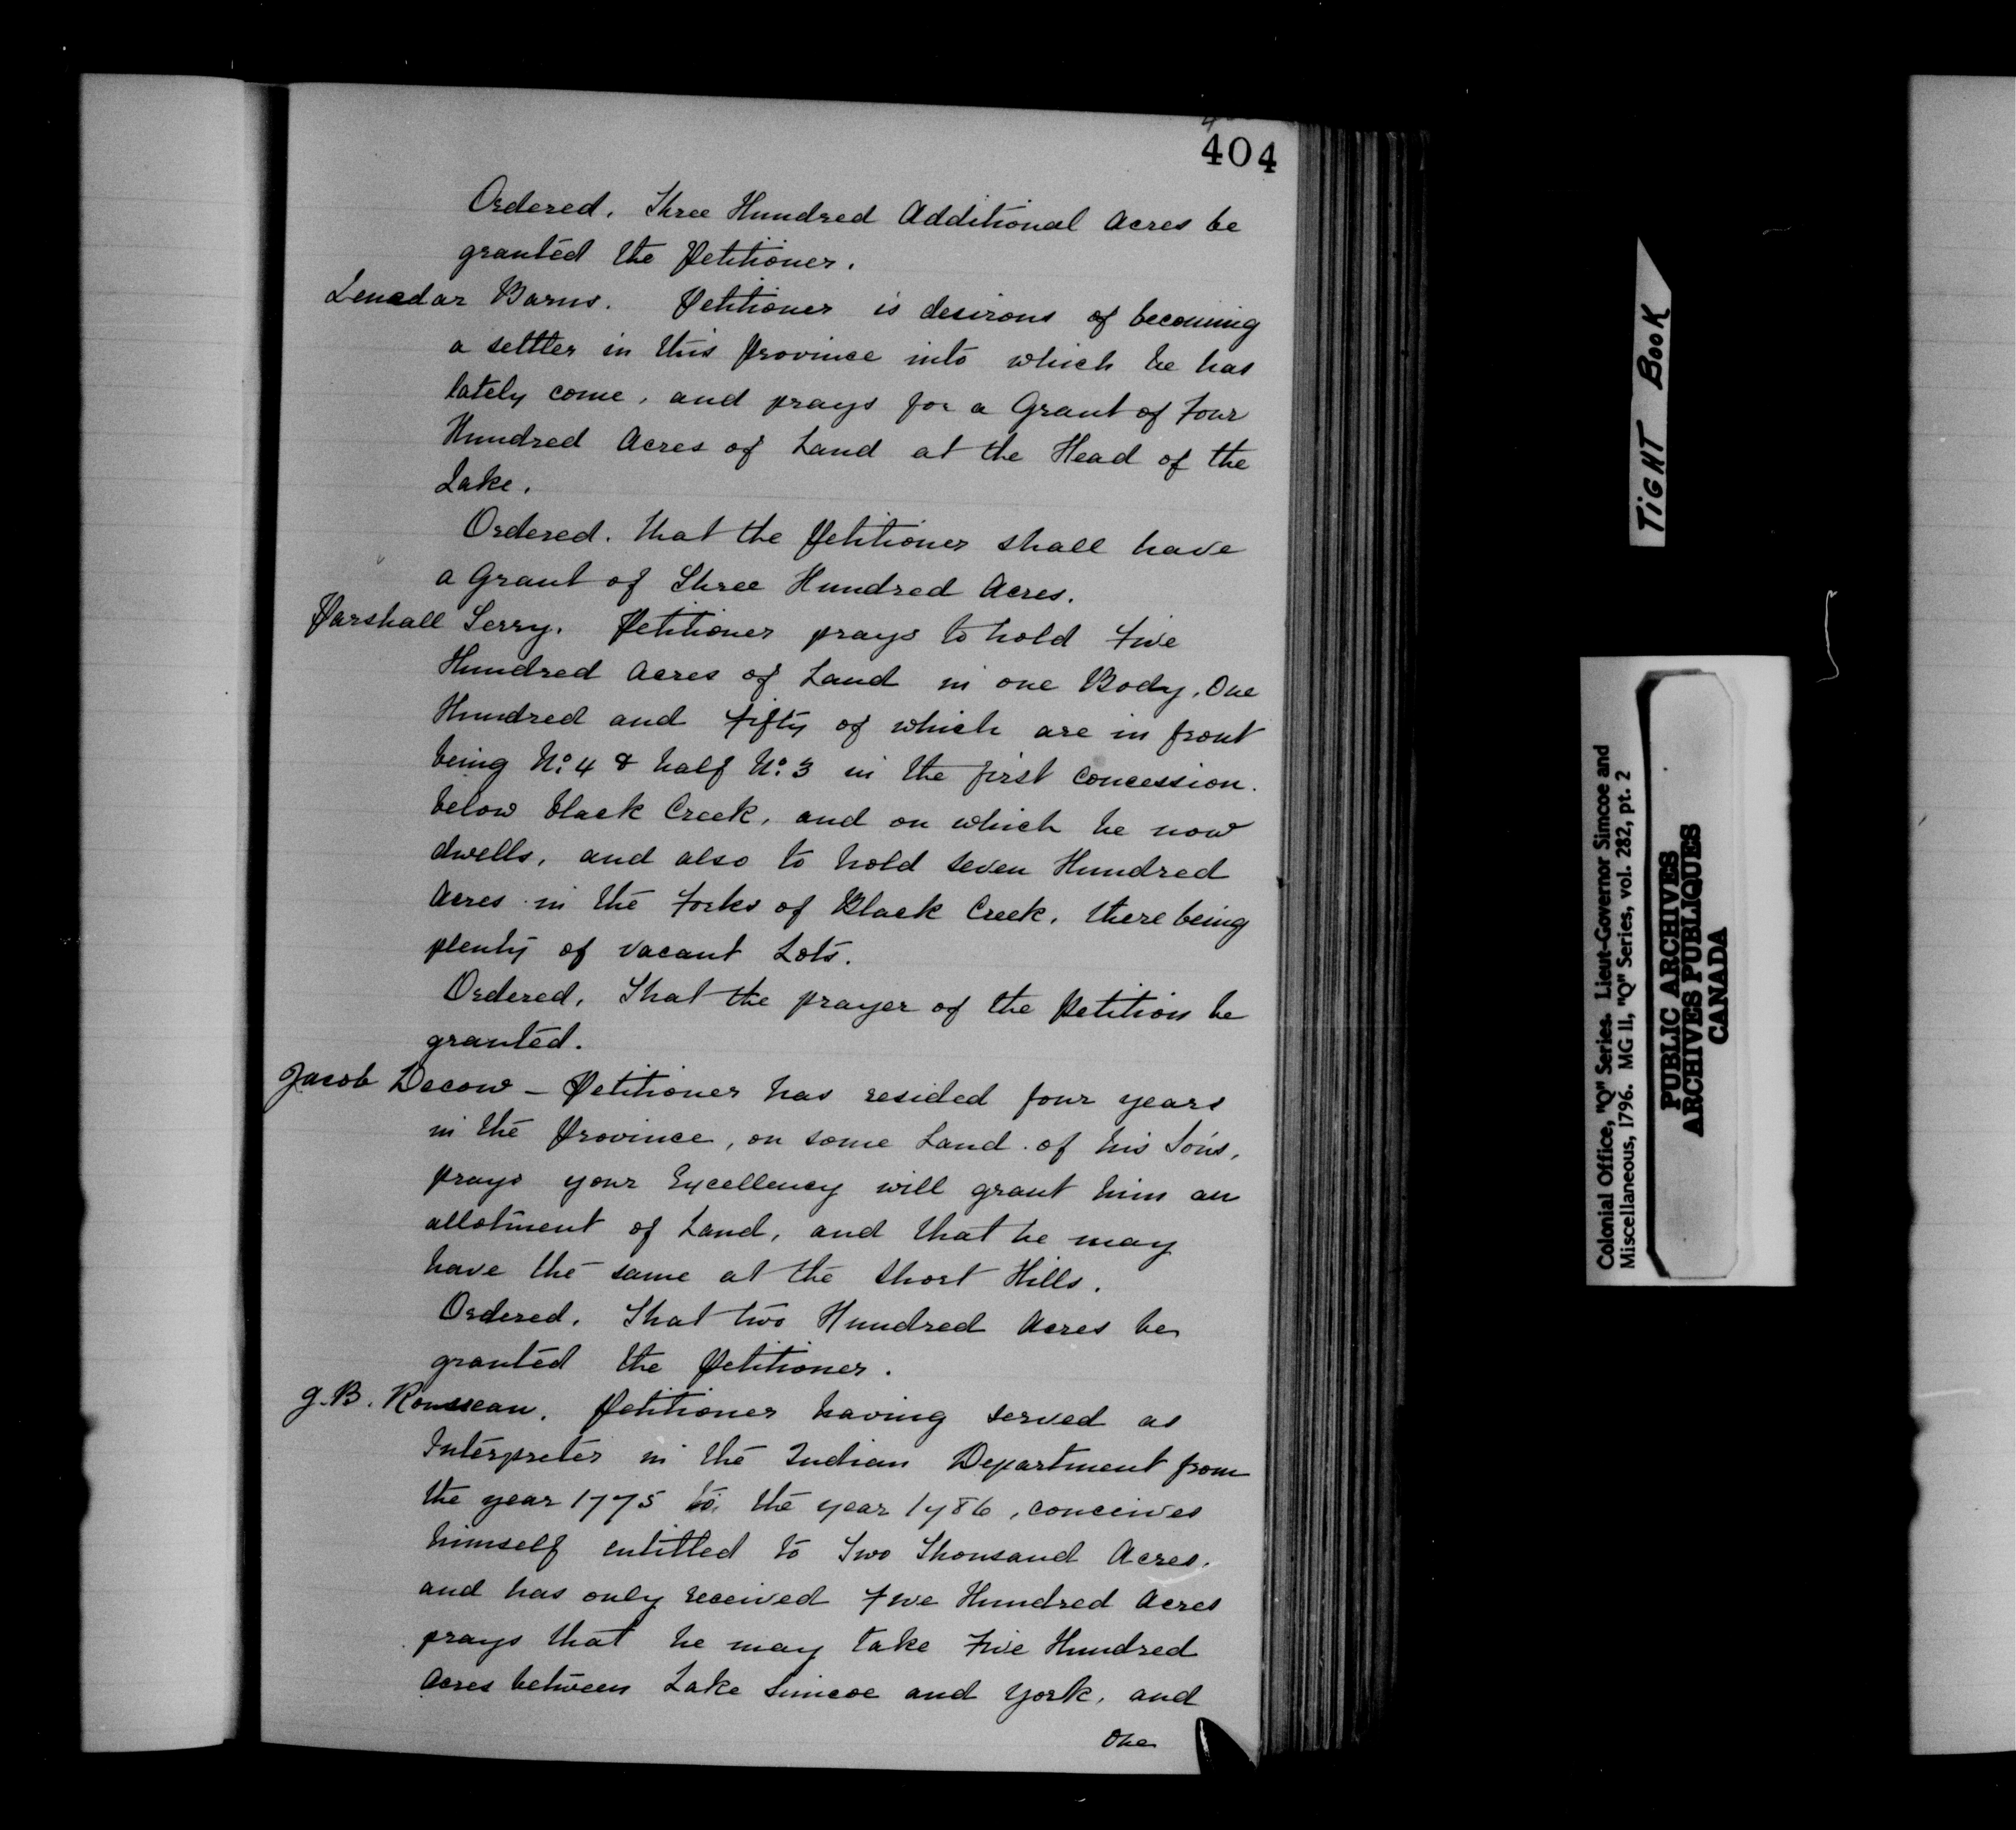 404
Ordered. Three Hundred Additional Acres be
granted the Petitioner.
Lenedar Barns. Petitioner is desirous of becoming
a settler in this Province into which he has
lately come, and prays for a Grant of Four
Hundred Acres of Land at the Head of the
Lake.
Ordered. that the Petitioner shall have
a Grant of Three Hundred Acres.
Parshall Terry. Petitioner prays to hold Five
Hundred Acres of Land in one Body, One
Hundred and Fifty of which are in front
being No. 4 & half No. 3 in the first Concession.
below black Creek, and on which he now
dwells, and also to hold seven Hundred
Acres in the Forks of Black Creek, there being
plenty of vacant Lots.
Ordered, That the prayer of the Petition be
granted.
Jacob Decow - Petitioner has resided four years
in the Province, on some Land of his Son's,
prays your Excellency will grant him an
allotment of Land, and that he may
have the same at the Short Hills.
Ordered, That two Hundred Acres be
granted the Petitioner.
J. B. Rousseau. Petitioner having served as
Interpreter in the Indian Department from
the year 1775 to the year 1786, conceives
himself entitled to Two Thousand Acres.
and has only received Five Hundred Acres
prays that he may take Five Hundred
Acres between Lake Simcoe and York, and
One
TIGHT BOOK
Colonial Office, "Q" Series. Lieut-Governor Simcoe and
Miscellaneous, 1796. MG 11, "Q" Series, vol. 282, pt. 2
PUBLIC ARCHIVES
ARCHIVES PUBLIQUES
CANADA